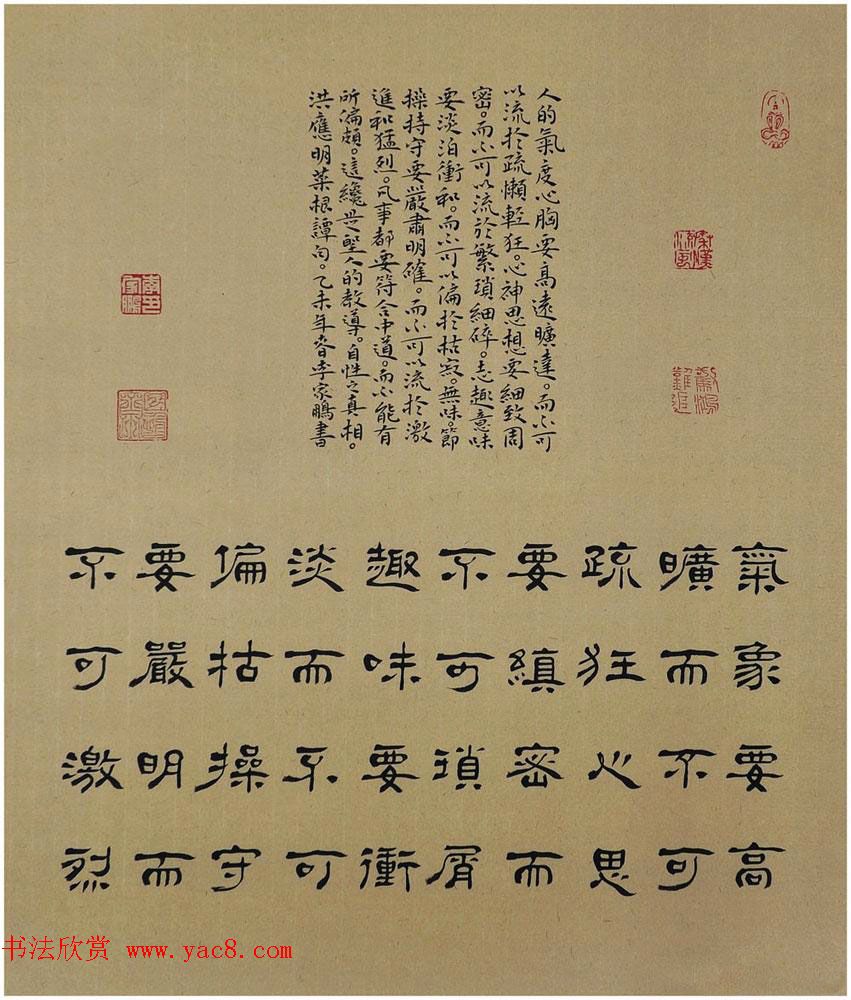 人的氣度心胸要高遠曠達。而不可
以流於疏懶輕狂。心神思想要細致周
密。而不可以流於繁瑣細碎。志趣意味
要淡泊衝和。而不可以偏於枯寂。無味。節
操持守要嚴肅明確。而不可以流於激
進和猛烈。凡事都要符合中道。而不能有
所偏頗。這纔是聖人的教導。自性之真相。
洪應明菜根譚句。乙未年春李家鵬書
氣象要高
曠而不可
疏狂心思
要縝密而
不可瑣屑
趣味要衝
淡而不可
偏枯操守
要嚴明而
不可激烈
书法欣赏 www.yac8.com